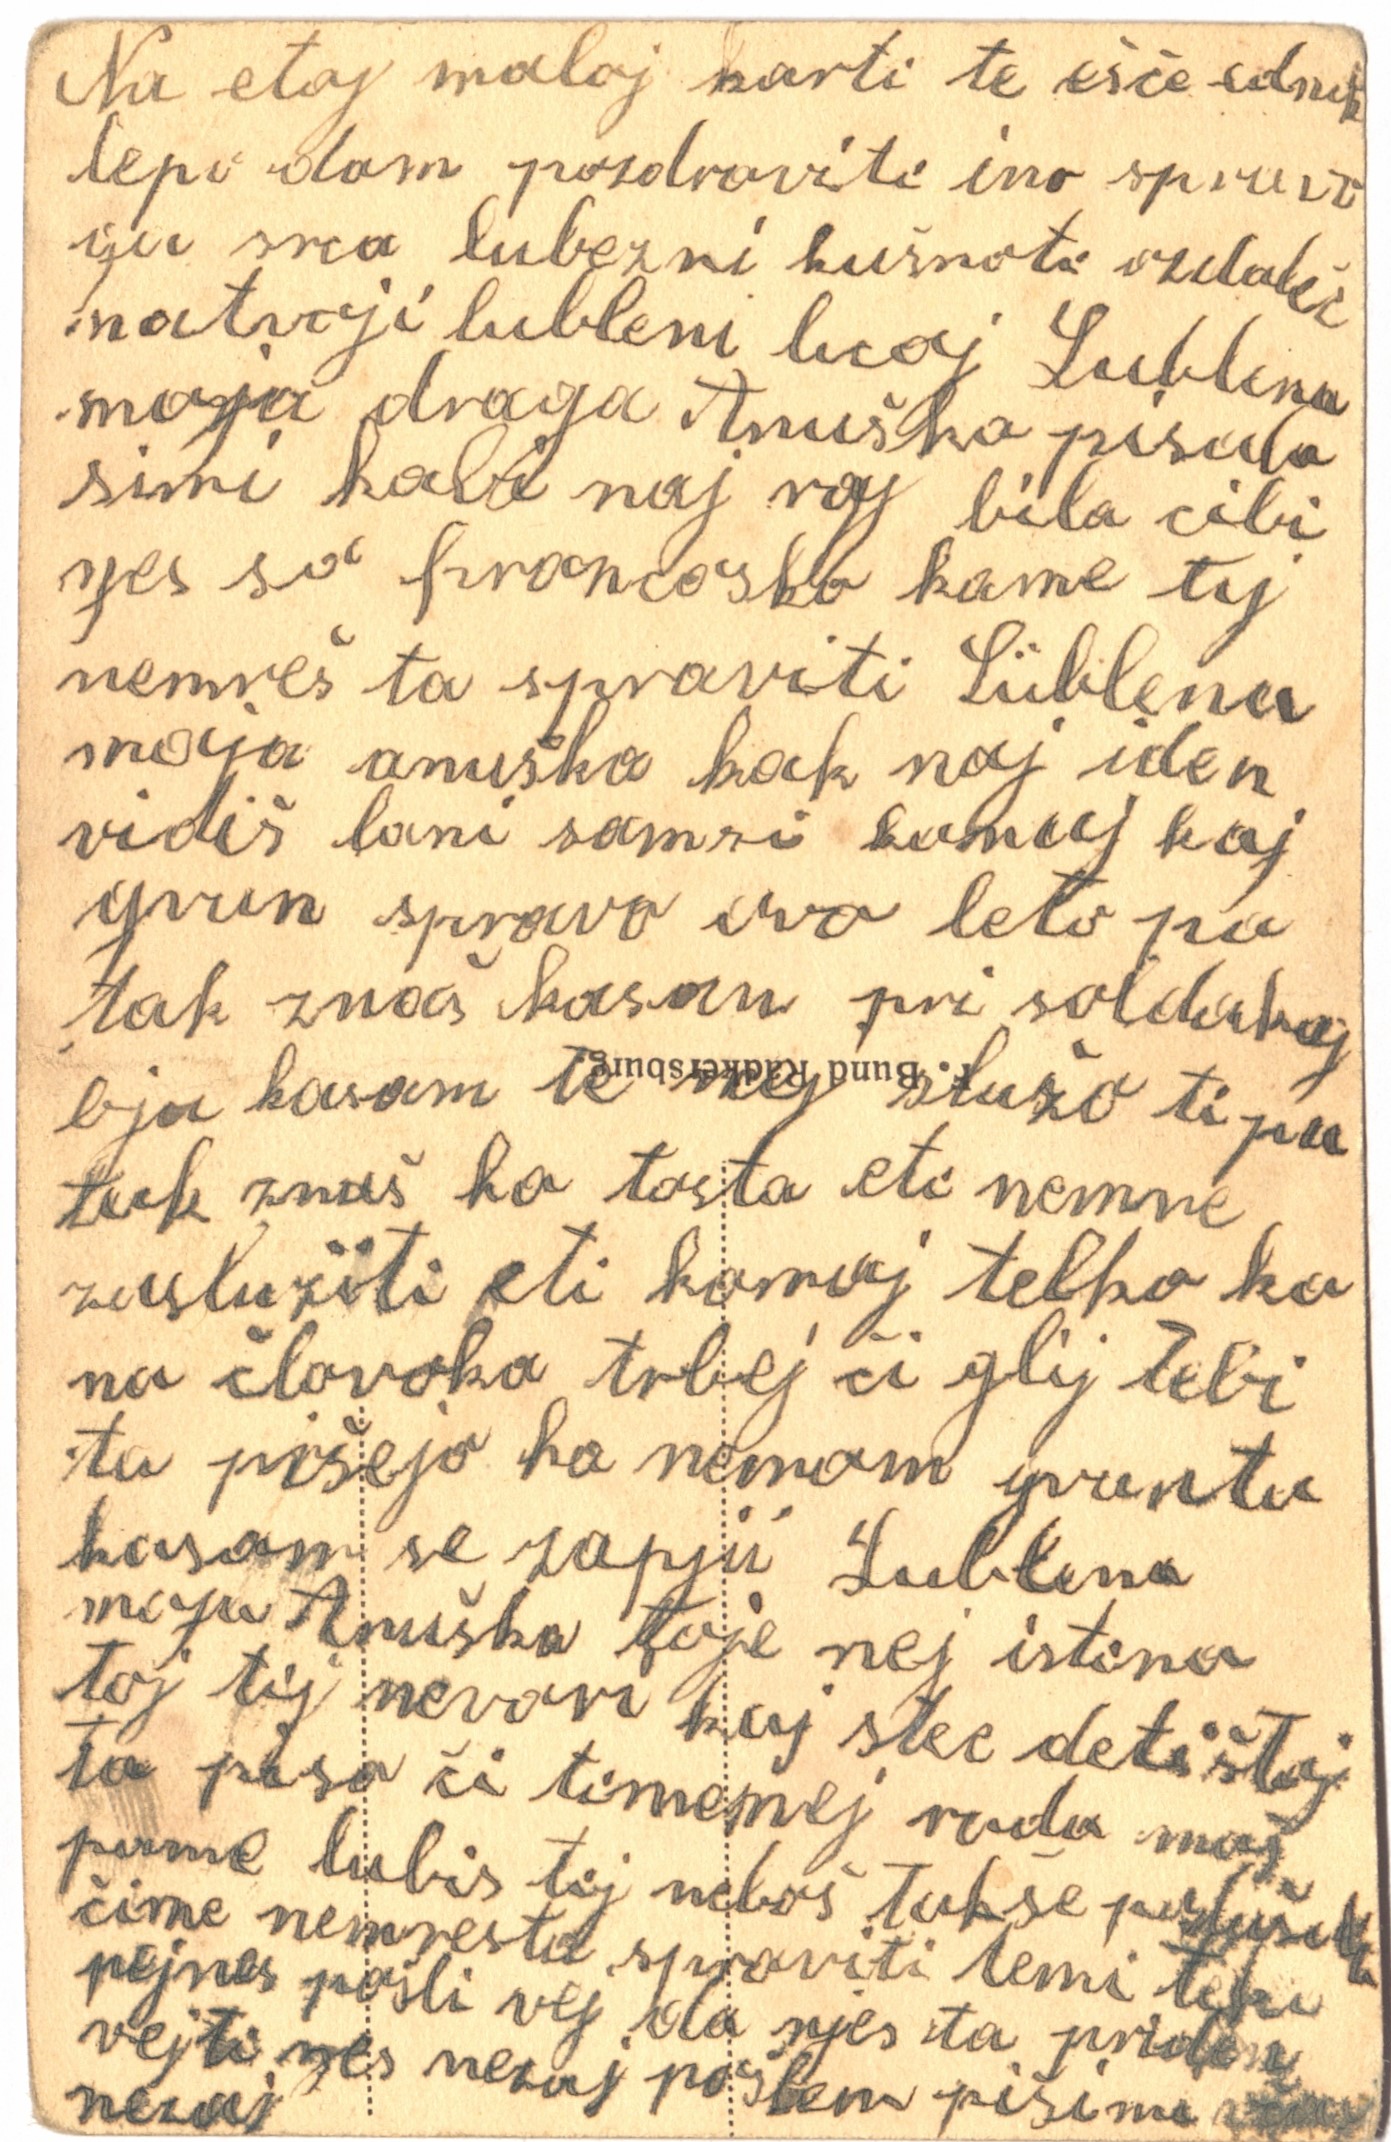 Na etoj maloj karti te ešče ednuk
lepo dam pozdraviti ino spravo
ga srca lubezni kušnoti ozdaleč
natvoji lubleni licaj Lublena
moja draga Anuška pisala
simi kabi naj raj bila cibi
jes so francosko kame tij
nemreš ta spraviti Lüblena
moja anuška kak naj iden
vidiš lani samsi komaj kaj
grun spravo ovo leto pa
tak znaš kasan pri soldakaj
bja kasam te nej služo ti pa
tak znaš ka tosta eti nemre
zaslužiti eti komaj telko ka
na človoka trbej či glij Tebi
ta pišejo ka nemam grunta
kasam se zapjii Lublena
moja Anuška toje nej istina
toj tij nevari kaj stec detištoj
ta piso či timenej rada maš
pame lubis tij neboš takše poslušala
čime nemresta spraviti temi teki
pejnes pošli vej da njes ta priden
vejti nes nezaj pošlem pišimi
nezaj
F. Bund Radkersburg.